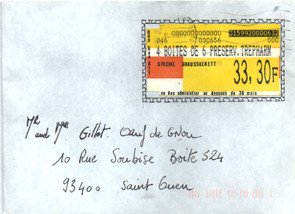 000000000000000 315992000000
046 000656 000
4 BOITES DE 6 PRESERV. TREPHARM
SPECIAL GRAUSSKERETT
33,30F
ne Pas administrer au dessous de 36 mois
Mlle and Mr Gillot Oeuf de Gnou
10 Rue Soubise Boite 524
93400 Saint Ouen